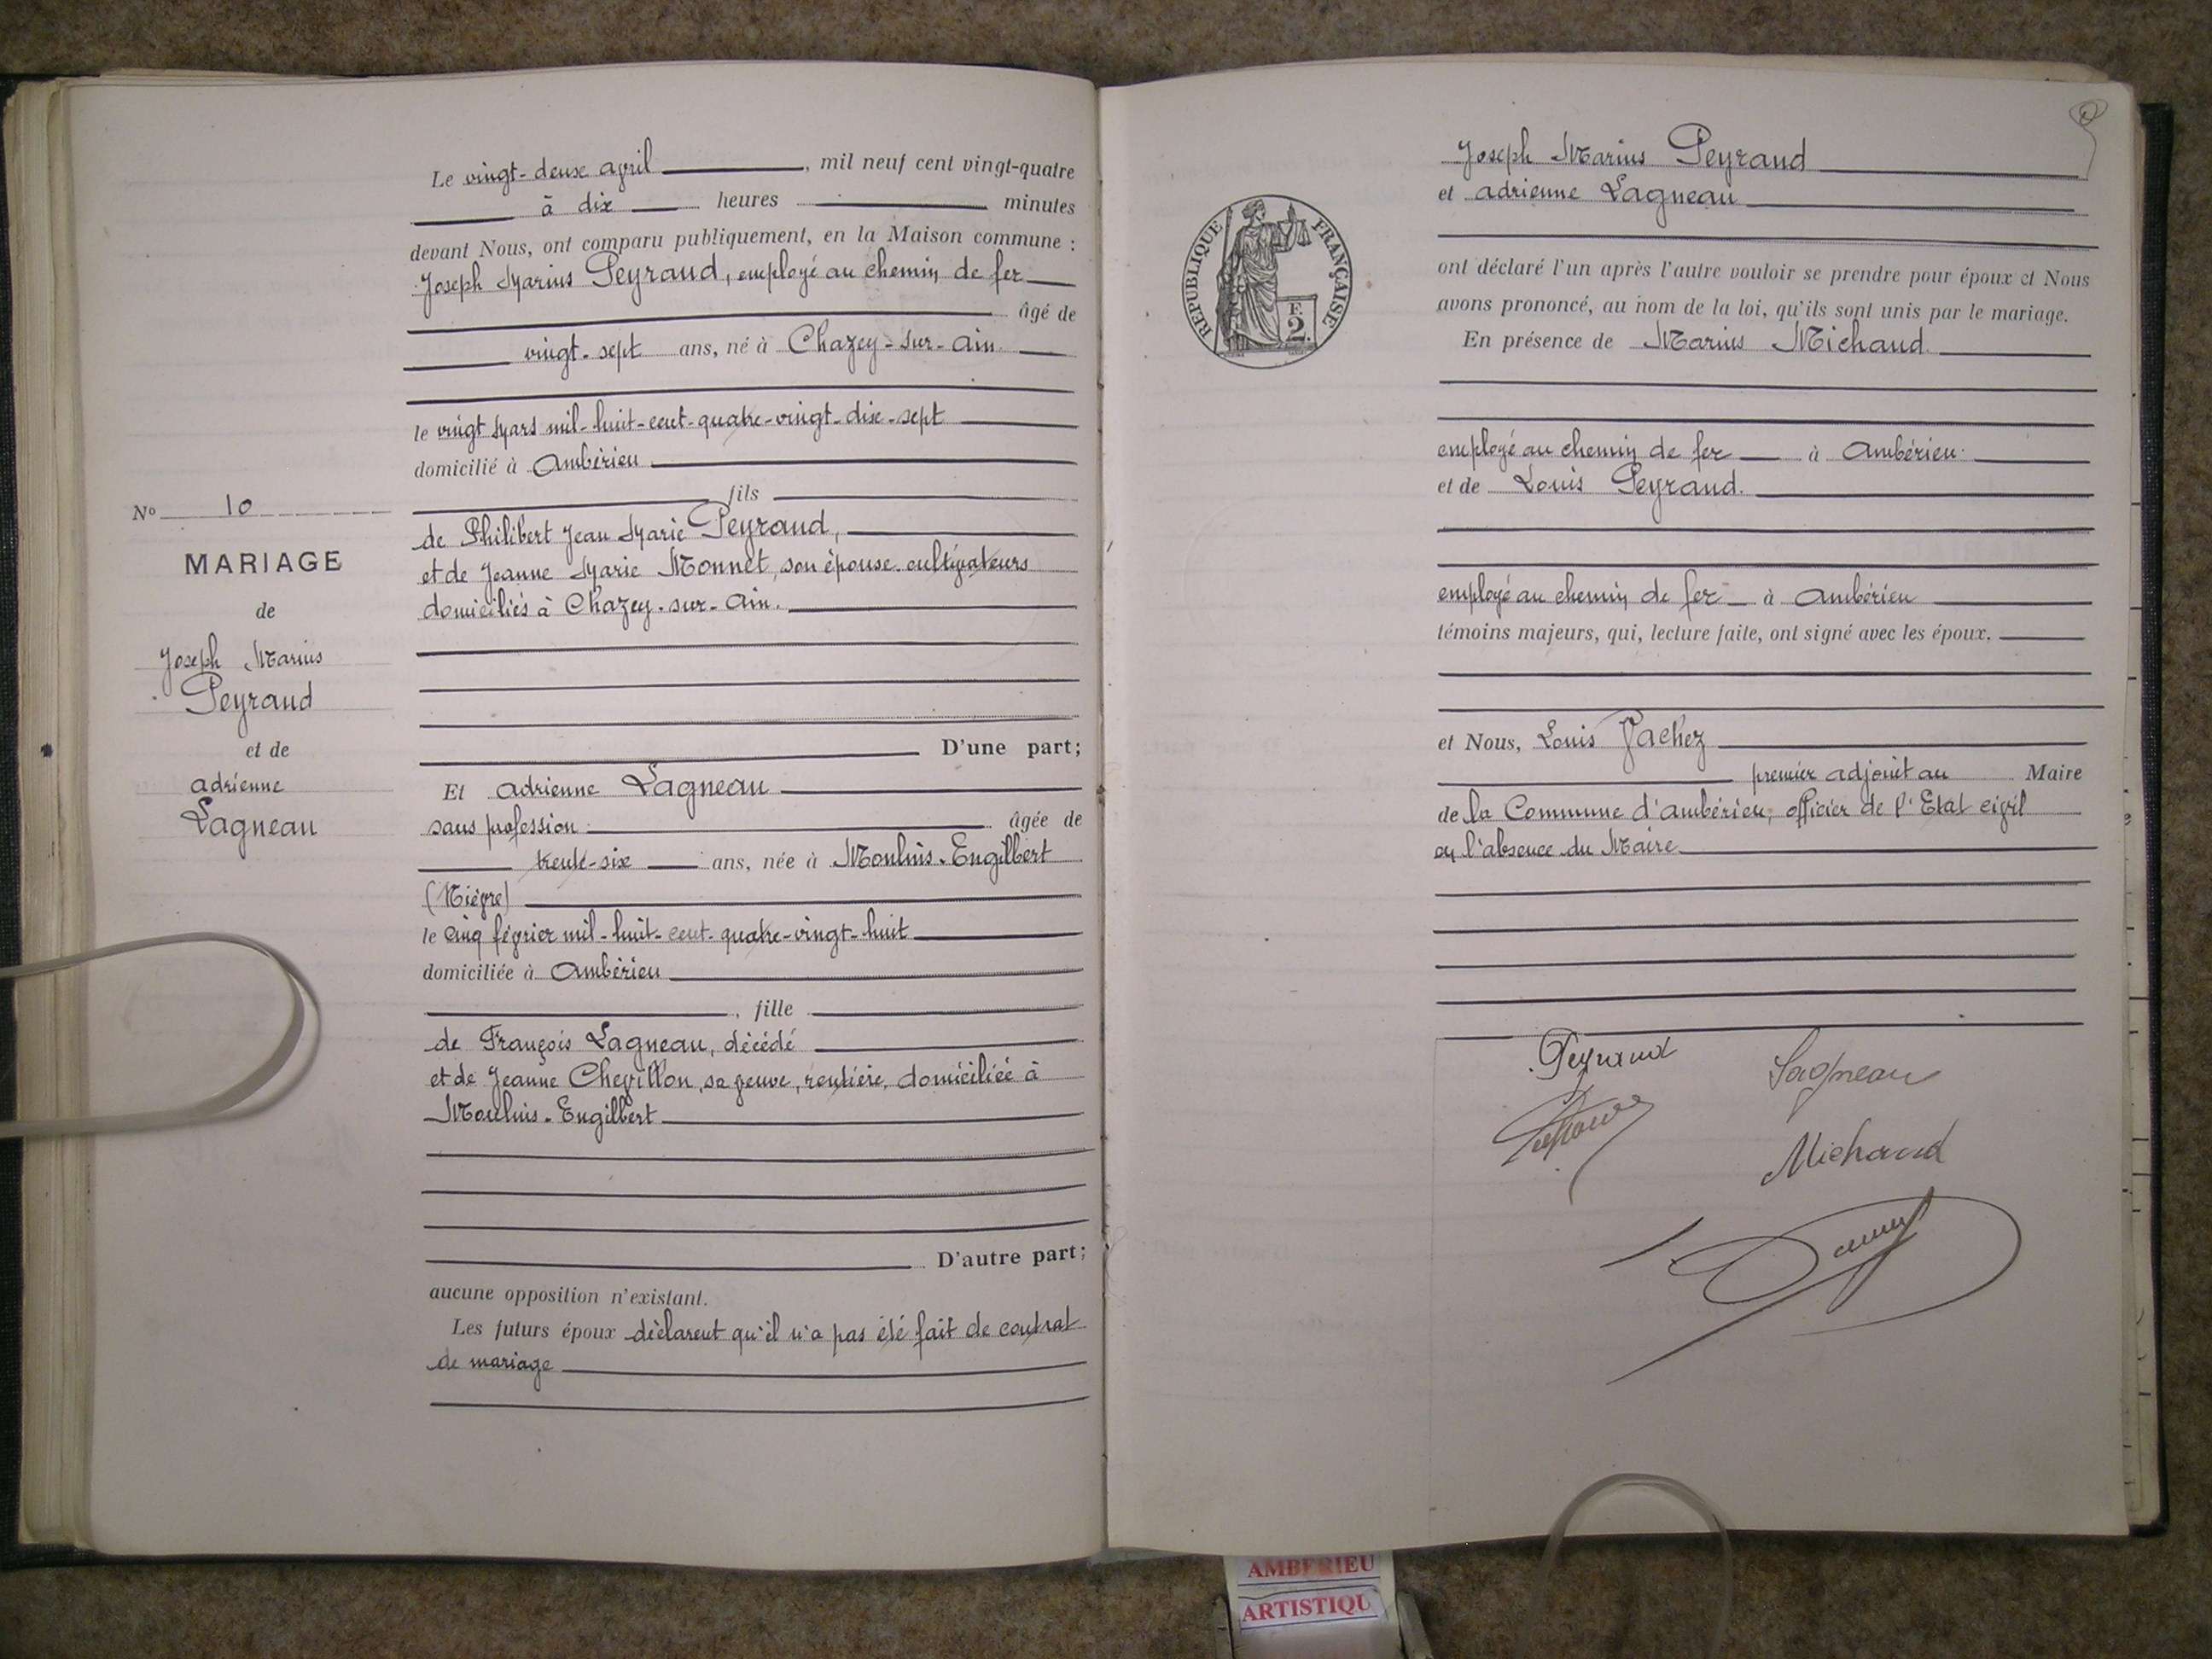 Le vingt-deux avril, mil neuf cent vingt-quatre
à dix heures minutes
devant Nous, ont comparu publiquement, en la Maison commune :
Joseph Marius Peyraud, employé au chemin de fer
âgé de
vingt-sept ans, né à Chazey-sur-Ain
le vingt Mars mil-huit-cent-quatre-vingt-dix-sept
domicilié à Ambérieu
fils
de Philibert Jean Marie Peyraud,
et de Jeanne Marie Monnet, son épouse cultivateurs
domiciliés à Chazey-sur-Ain.
D'une part;
Et Adrienne Lagneau
sans profession âgée de
trente-six ans, née à Moulins-Engilbert
(Nièvre)
le cinq février mil-huit-cent-quatre-vingt-huit
domiciliée à Ambérieu
, fille
de François Lagneau, décédé
et de Jeanne Chevillon, sa veuve, rentière, domiciliée à
Moulins-Engilbert
D'autre part;
aucune opposition n'existant.
Les futurs époux déclarent qu'il n'a pas été fait de contrat
de mariage
No 10
MARIAGE
de
Joseph Marius
Peyraud
et de
Adrienne
Lagneau
Joseph Marius Peyraud
et Adrienne Lagneau
ont déclaré l'un après l'autre vouloir se prendre pour époux et Nous
avons prononcé, au nom de la loi, qu'ils sont unis par le mariage.
En présence de Marius Michaud
employé au chemin de fer à Ambérieu
et de Louis Peyraud.
employé au chemin de fer à Ambérieu
témoins majeurs, qui, lecture faite, ont signé avec les époux.
et Nous, Louis
premier adjoint au Maire
de la Commune d'Ambérieu, officier de l'Etat civil
en l'absence du Maire
RÉPUBLIQUE FRANÇAISE
F.
2.
Peyraud
Lagneau
Michaud
AMBERIEU
ARTISTIQU